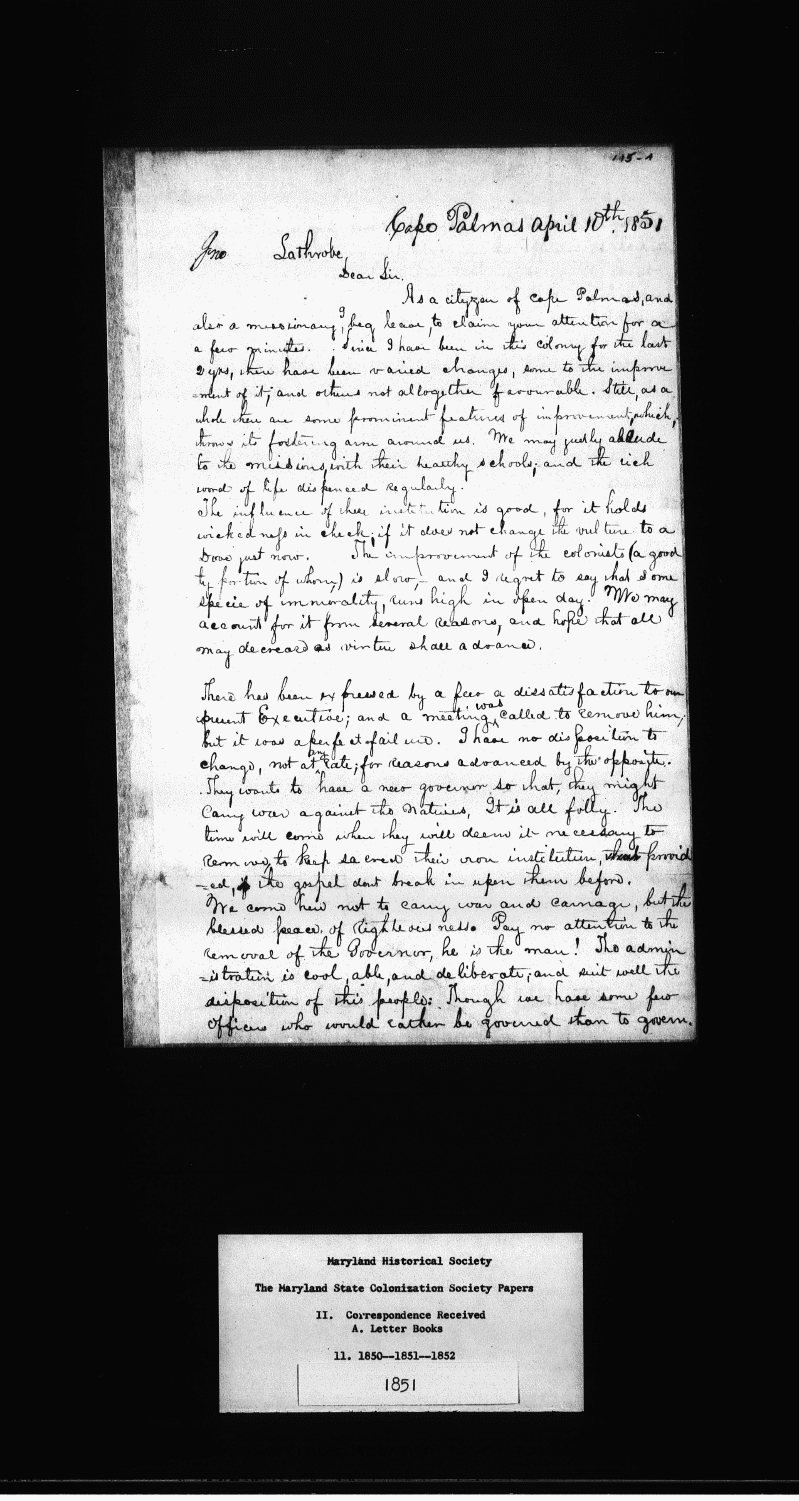 115-A
Cape Palmas April 10th. 1851
Jno Lathrobe,
Dear Sir.
As a cityzen of cape Palmas, and
also a missionary, I beg leave, to claim your attention for a
a few minutes. Since I have been in this colony for the last
2 yrs, there have been varied changes, some to the improve
=ment of it; and others not altogether favourable. Still, as a
whole there are some prominent features of improvement, which,
throws its fostering arm around us. We may justly allude
to the missions, with their healthy schools; and the rich
word of life dispenced regularly.
The influence of these institution is good, for it holds
wickedness in check; if it does not change the vulture to a
Dove just now. The improvement of the colonists (a good
ly portion of whom,) is slow,– and I regret to say that some
specie of immorality, runs high in open day. We may
account for it from several reasons, and hope that all
may decrease as virtue shall advance.
There has been expressed by a few a dissatisfaction to our
present Executive; and a meeting was called to remove him;
but it was a perfect failure. I have no disposition to
change, not at any rate; for reasons advanced by the opposite.
They wants to have a new governor so that, they might
carry war against the Natives, It is all folly. The
time will come when they will deem it necessary to
remove, to keep sacred their own institution, provid
=ed, if the gospel dont break in upon them before.
We come here not to carry war and carnage, but the
blessed peace of righteousness. Pay no attention to the
removal of the Governor, he is the man! The admin
=istration is cool, able, and deliberate; and suit well the
disposition of this people: Though we have some few
officers who would rather be governed than to govern.
Maryland Historical Society
The Maryland State Colonization Society Papers
II. Correspondence Received
A. Letter Books
11. 1850--1851--1852
1851